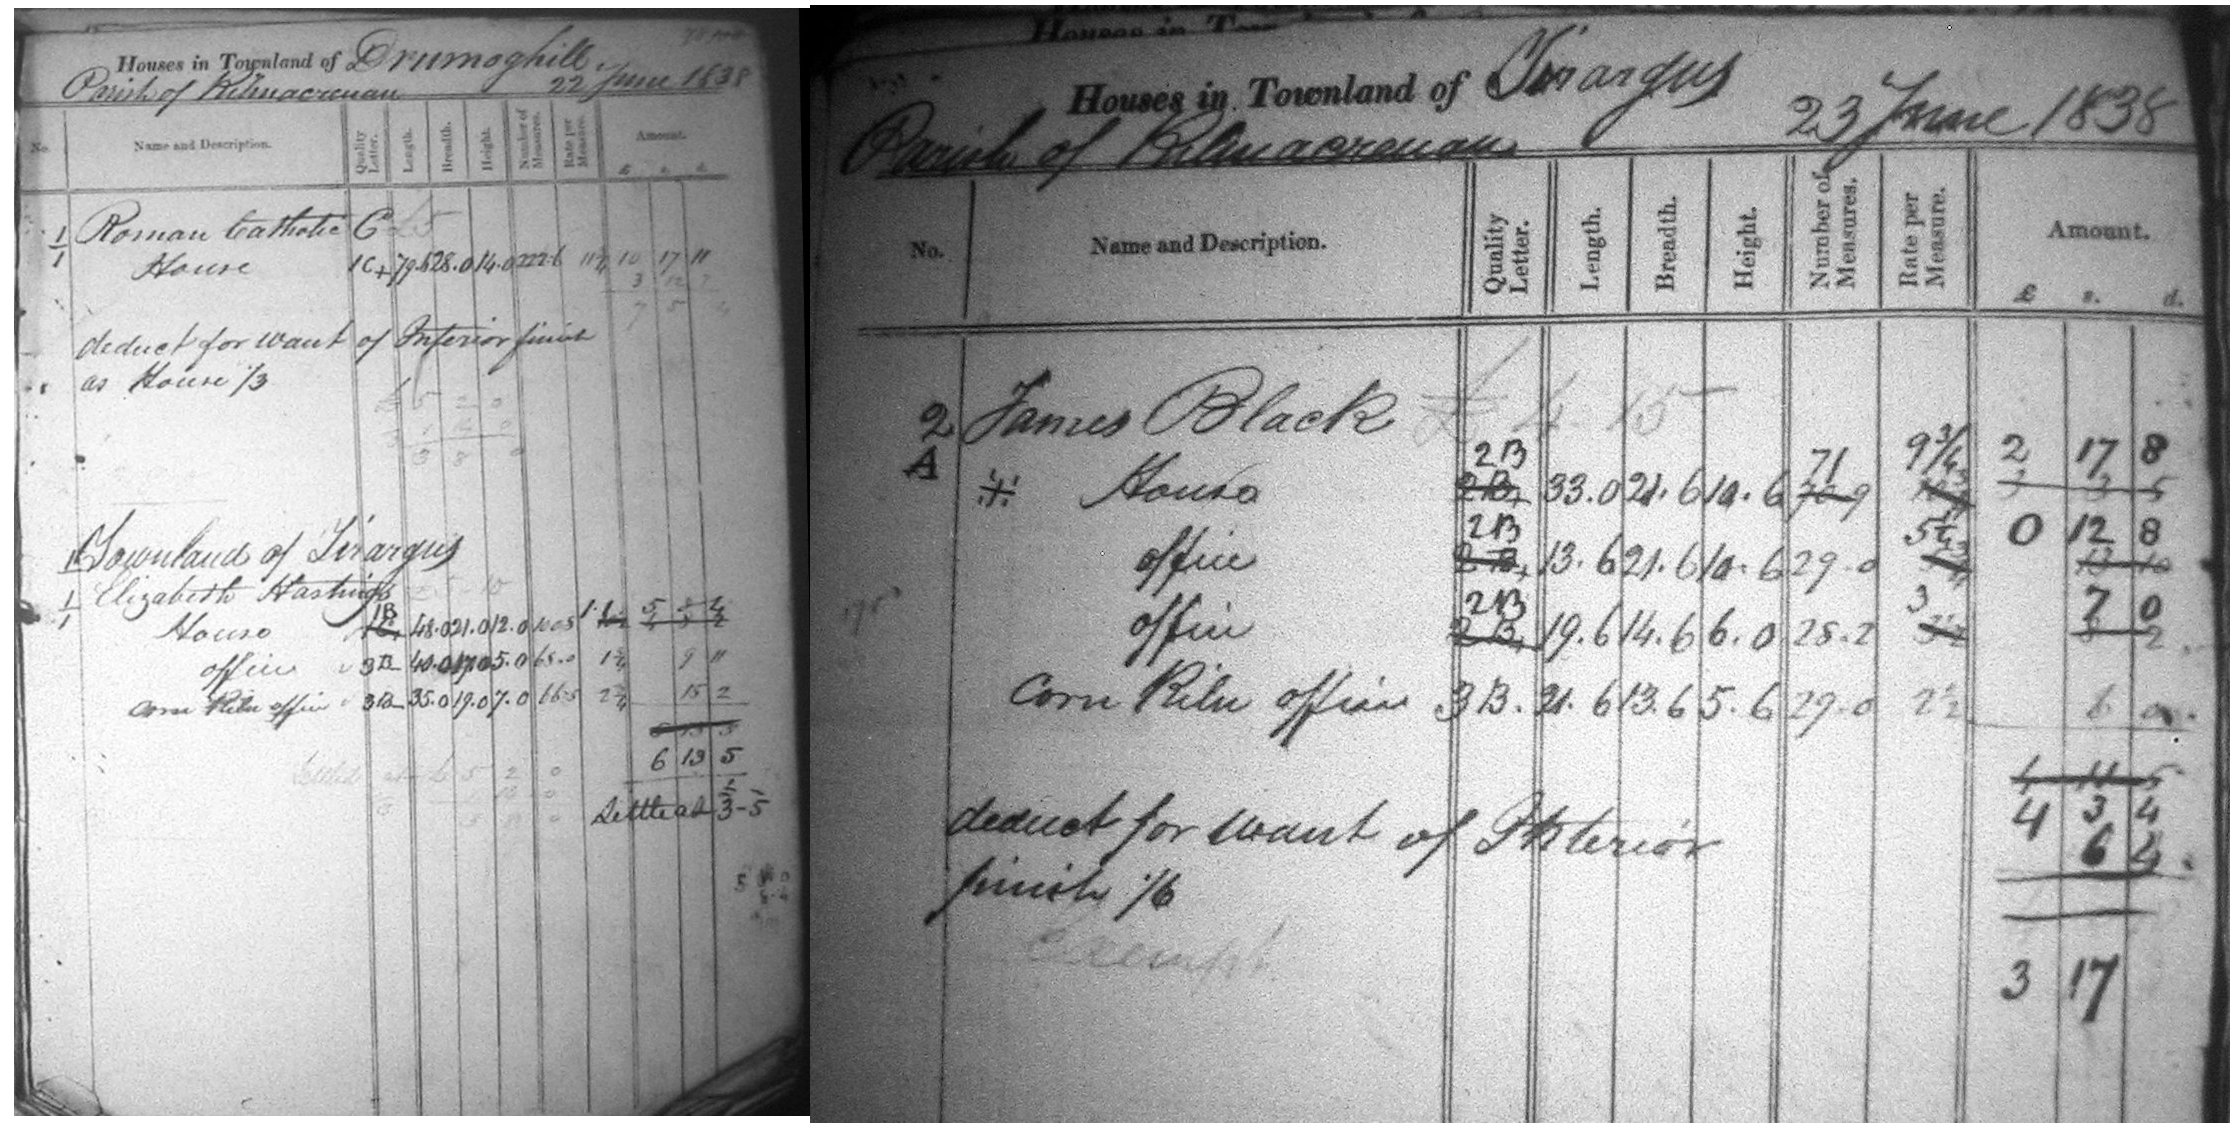 Houses in Townland of Drumoghill
Parish of Kilmacrenan 22 June 1838
No. Name and Description. Quality Letter. Length. Breadth. Height. Number of Measures. Rate per Measure. Amount. £ s. d.
1 Roman Catholic C £5
1 House 1C+ 79.6 28.0 14.0 222.6 11¾ 10 17 11
3 12 7
7 5 4
deduct for want of Interior finish
as House 1/3
£ 5 2 0
Townland of Tirargus
1 Elizabeth Hastings 5-10
1 House 1B 48.0 21.0 12.0 100.8 1.1 5
office 3B 40.0 17.0 5.0 68.0 1¾ 9 11
Corn Kiln office 3B 35.0 19.0 7.0 66.5 2¾ 15 2
6 13 5
£ 5 2 0
Settle at 3-5
Houses in Townland of Tirargus
Parish of Kilmacrenan 23 June 1838
No. Name and Description. Quality Letter. Length. Breadth. Height. Number of Measures. Rate per Measure. Amount. £ s. d.
2 James Black £ 4-15
A House 2B 33.0 21.6 10.6 71 9¾ 2 17 8
office 2B 13.6 21.6 10.6 29.0 5¼ 0 12 8
office 2B 19.6 14.6 6.0 28.2 3 7 0
Corn Kiln office 3B. 21.6 13.6 5.6 29.0 2½ 6 0
4 11 5
4 3 4
6 4
deduct for want of Interior
finish 1/6
Exempt
3 17